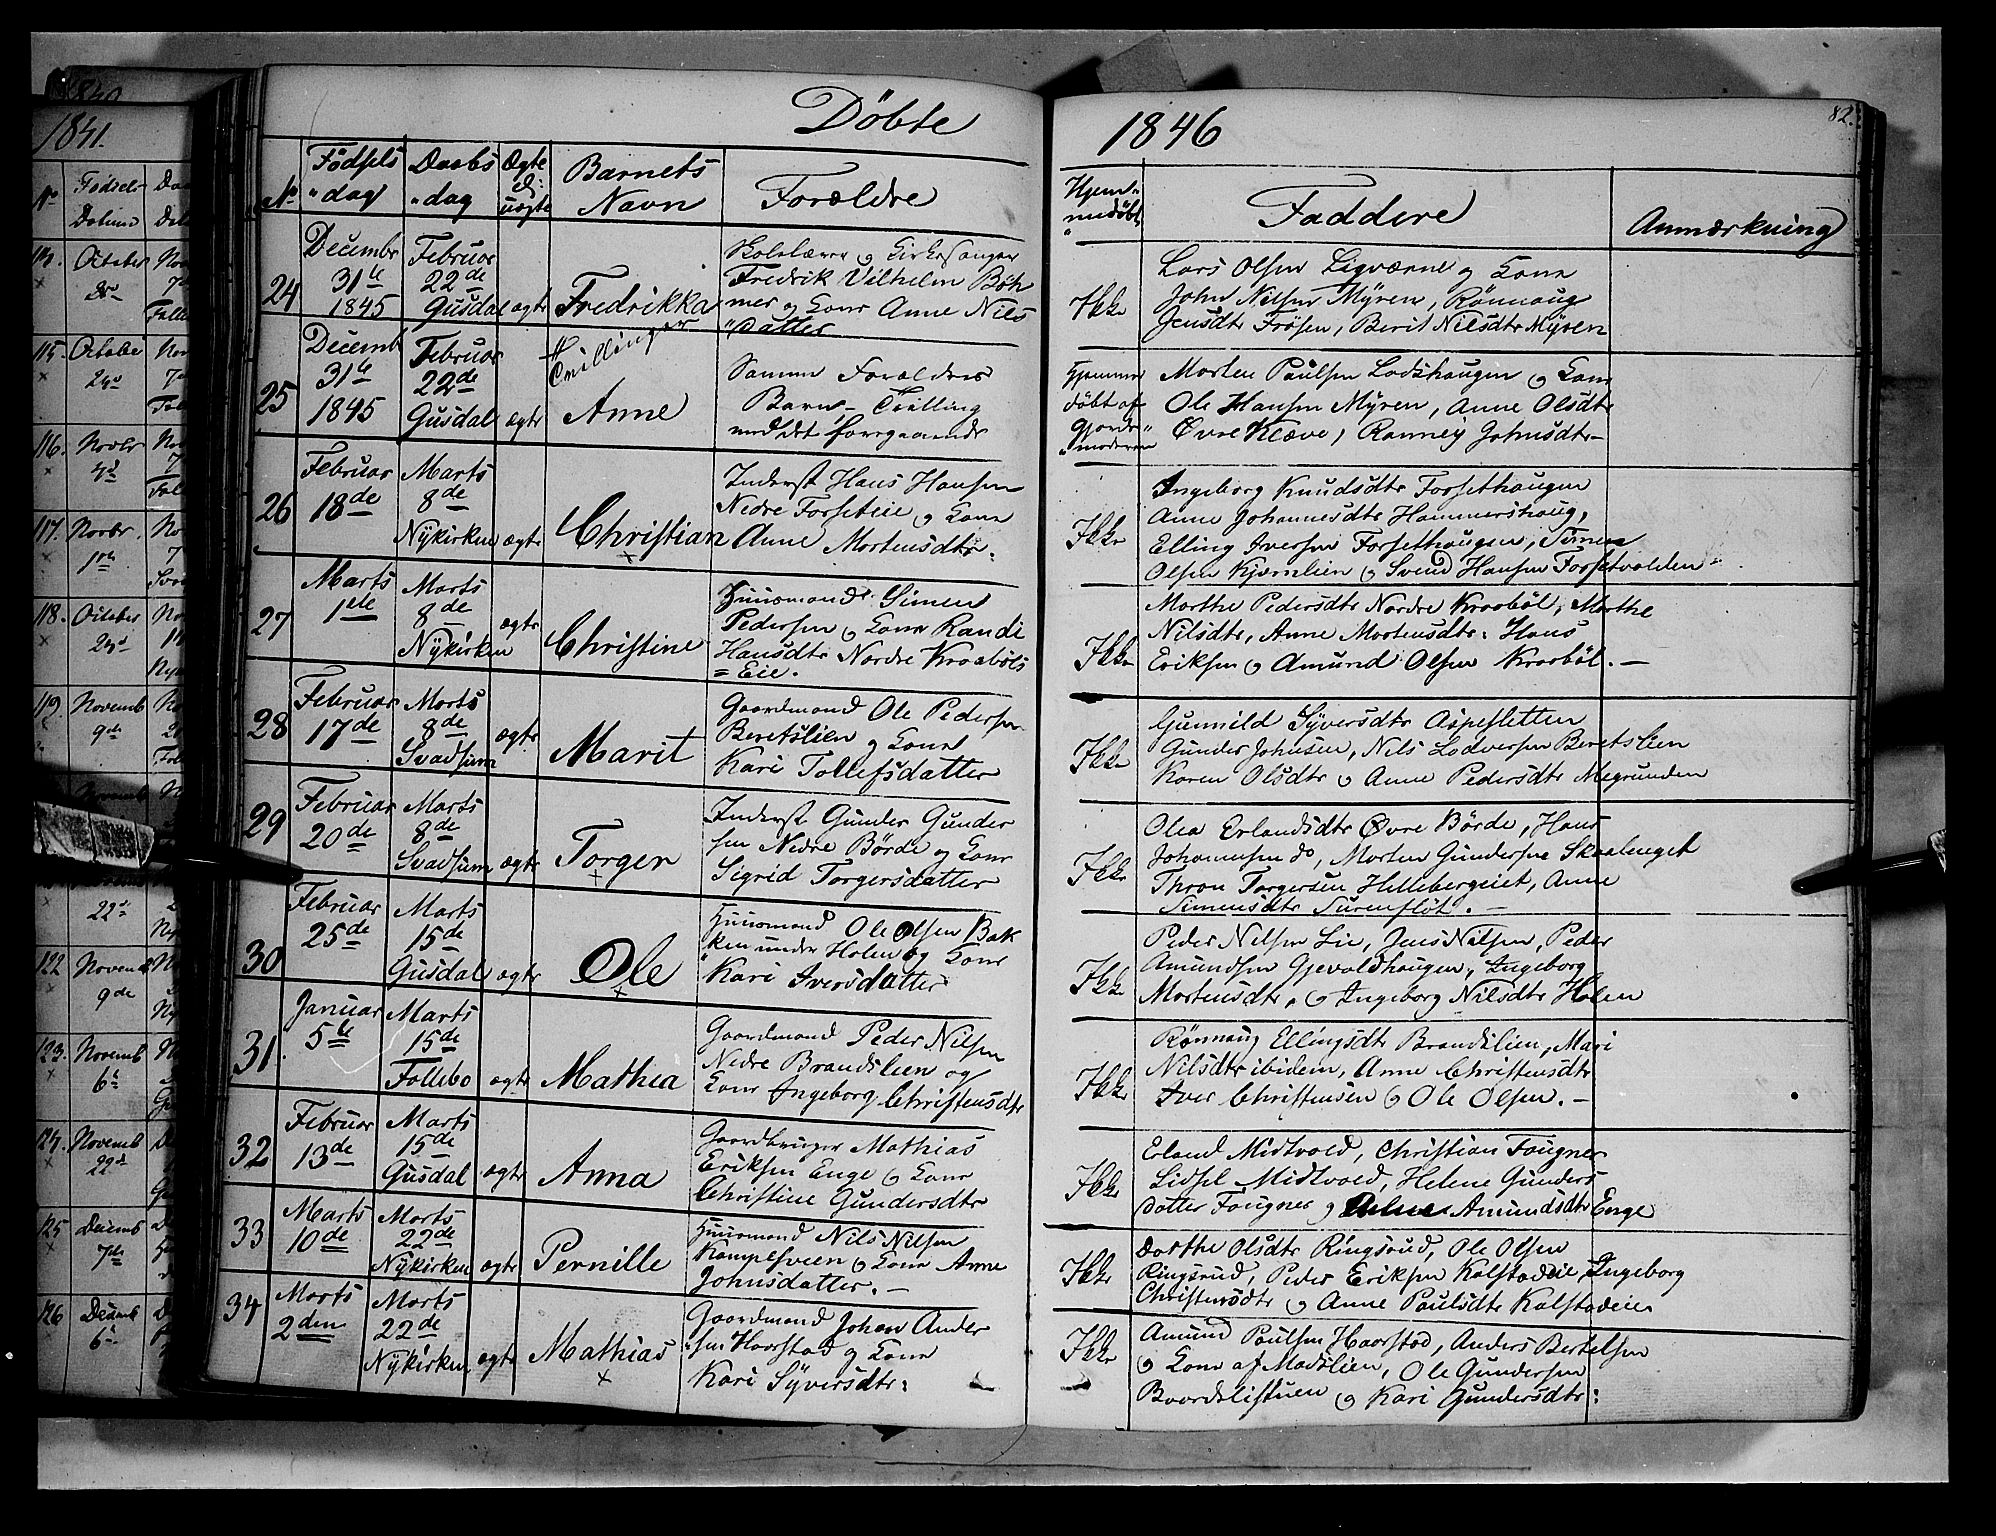 Döbte
1846
82.
No
Födsels dag
Daabs dag
Ægte el: uægte
Barnets Navn
Forældre
Hjemmedöbt
Faddere
Anmærkning
24
Decembr 31te 1845
Februar 22de Gusdal
ægte
Fredrikka
Skolelærer og Kirkesanger
Fredrik Vilhelm Böh
mer og Kone Anne Nils
datter
Ikke
Lars Olsen Ligværne og Kone
John Nilsen Myren, Rönnaug
Jensdtr Frösen, Berit Nilsdtr Myren
Tvillinger
25
Decemb 31te 1845
Februar 22de Gusdal
ægte
Anne
Samme Forældres
Barn - Tvilling
med det foregaaende
Hjemme
döbt af
Gjorde
moderen
Morten Paulsen Lodshaugen og Kone
Ole Hansen Myren, Anne Olsdtr
Övre Klæve, Ranneÿ Johnsdtr
26
Februar 18de
Marts 8de Nÿkirken
ægte
Christian
Inderst Hans Hansen
Nedre Forseteie og Kone
Anne Mortensdtr:
Ikke
Ingeborg Knudsdtr Forsethaugen
Anne Johannesdtr Hammershaug,
Elling Iversen Forsethaugen, Simen
Olsen Kjernlien og Svend Hansen Forsetvolden
27
Marts 1ste
Marts 8de Nÿkirken
ægte
Christine
Huusmand Simen
Pedersen og Kone Randi
Hansdtr Nordre Kraaböls
Eie.
Ikke
Marthe Pedersdtr Nordre Kraaböl, Marthe
Nilsdtr, Anne Mortensdtr: Hans
Eriksen og Amund Olsen Kraaböl. —
28
Februar 17de
Marts 8de Svadsum
ægte
Marit
Gaardmand Ole Pedersen
Beretslien og Kone
Kari Tollefsdatter
Ikke
Gunnild Sÿversdtr Aspesletten
Gunder Johnsen, Nils Lodversen Beretslien
Karen Olsdtr og Anne Pedersdtr Megrunden
29
Februar 20de
Marts 8de Svadsum
ægte
Torger
Inderst Gunder Gunder
sen Nedre Börde og Kone
Sigrid Torgersdatter
Ikke
Olea Erlandsdtr Övre Börde, Hans
Johannesen do, Morten Gundersen Skaalneget
Thron Torgersen Hillebergeiet, Anne
Simensdtr Surenflöt. —
30
Februar 25de
Marts 15de Gusdal
ægte
Ole
Huusmand Ole Olsen Bak
ken under Holen og Kone
Kari Iversdatter
Ikke
Peder Nilsen Lie, Jens Nilsen, Peder
Amundsen Gjevaldhaugen, Ingeborg
Mortensdtr, og Ingeborg Nilsdtr Holen
31
Januar 5te
Marts 15de Follebo
ægte
Mathea
Gaardmand Peder Nilsen
Nedre Brandslien og
Kone Ingeborg Christensdtr
Ikke
Rönnaug Ellingsdtr Brandslien, Mari
Nilsdtr ibidem, Anne Christensdtr
Iver Christensen og Ole Olsen. —
32
Februar 13de
Marts 15de Gusdal
ægte
Anna
Gaardbruger Mathias
Eriksen Enge og Kone
Christine Gundersdtr
Ikke
Erland Midtvold, Christian Fougner
Lidsel Midtvold, Helene Gunders
datter Fougner og Amundsdtr Enge
33
Marts 10de
Marts 22de Nÿkirken
ægte
Pernille
Huusmand Nils Nilsen
Kampesveen og Kone Anne
Johnsdatter. —
Ikke
Dorthe Olsdtr Ringsrud, Ole Olsen
Ringsrud, Peder Eriksen Kalstadeie, Ingeborg
Christensdtr og Anne Paulsdtr Kalstadeie
34
Marts 2den
Marts 22de Nÿkirken
ægte
Mathias
Gaardmand Johan Ander
sen Haarstad og Kone
Kari Sÿversdtr:
Ikke
Amund Paulsen Haarstad, Anders Bertelsen
og Kone af Modslien, Ole Gundersen
Baardslistuen og Kari Gundersdtr:
1841.
No
Födsels Datum
114.
October
115.
October
24de
116.
Novbr
117.
Novbr.
118.
October
119.
Novemb
9de
22de
122
Novemb
9de
123.
Novemb
6te
124.
Novemb
22de
125
Decemb
7de
126
Decemb
6te